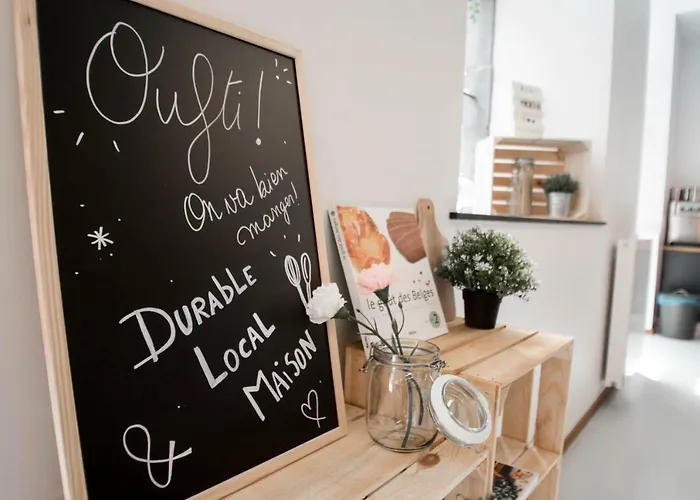 Oufti !
On va bien
manger!
DURABLE
LOCAL
MAISON
&
le goût des Belges
2